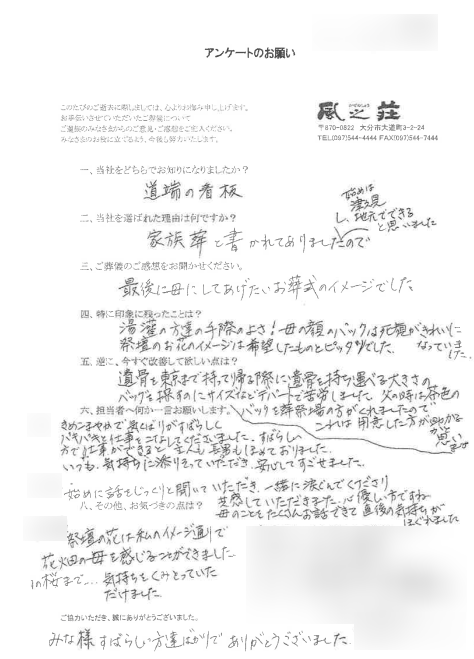 アンケートのお願い
このたびのご逝去に際しましては、心よりお悔み申し上げます。
お手伝いさせていただいたご葬儀について
ご遺族のみなさまからのご意見・ご感想をご記入ください。
みなさまのお役に立てるよう、今後も努力いたします。
風之荘
〒870-0822 大分市大道町3-2-24
TEL(097)544-4444 FAX(097)544-7444
一、当社をどちらでお知りになりましたか?
道端の看板
二、当社を選ばれた理由は何ですか?
家族葬と書かれてありましたので
始めは
津久見
し、地元でできる
と思いました
三、ご葬儀のご感想をお聞かせください。
最後に母にしてあげたいお葬式のイメージでした
四、特に印象に残ったことは?
湯灌の方達の手際のよさ!母の顔のパックは死顔がきれいに
なっていました。
祭壇のお花のイメージは希望したものとピッタリでした。
五、逆に、今すぐ改善して欲しい点は?
遺骨を東京まで持って帰る際に遺骨を持ち運べる大きさの
バックを探すのにサイズなどデパートで苦労しました。父の時は茶色の
バックを葬祭場の方がくれましたので
これは用意した方が
と思います
六、担当者へ何か一言お願いします。
きめこまやかで気くばりがすばらしく
バキバキと仕事をこなしてくださいました。すばらしい
方で仕事ができると主人も長男もほめておりました。
いつも、気持ちに添りそっていただき、安心してすごせました。
始めに話をじっくりと聞いていただき、一緒に涙ぐんでくださり
共感していただきました。心優しい方ですね
母のことをたくさんお話できて直後の気持ちが
ほぐれました
八、その他、お気づきの点は?
祭壇の花は私のイメージ通りで
花畑の母を感じることができました
桜まで… 気持ちをくみとっていた
だけました
ご協力いただき、誠にありがとうございました。
みな様すばらしい方達ばかりでありがとうございました。